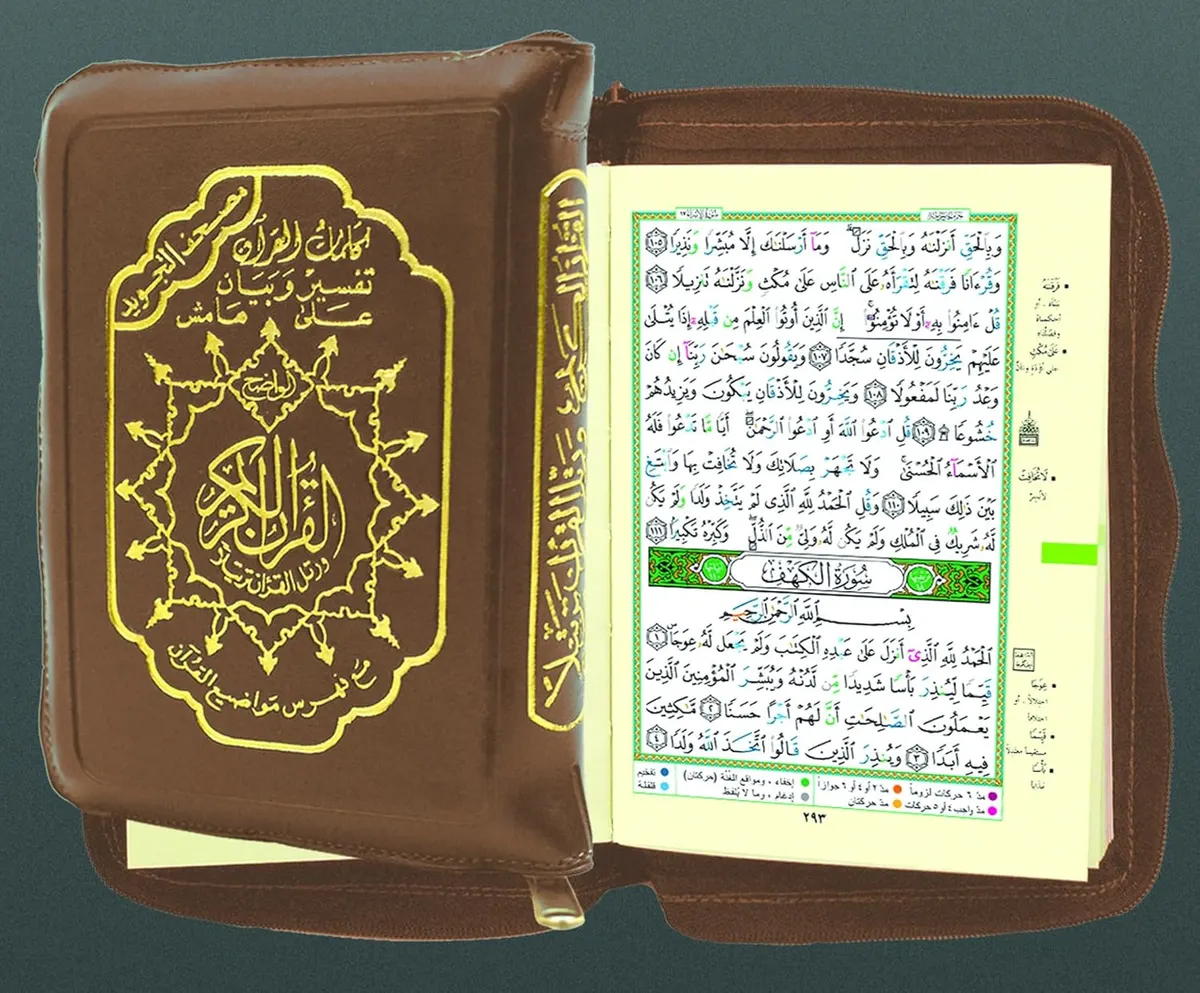 مصحف التجويد
كلمات القرآن
تفسير وبيان
على هامش
الواضح
القرآن الكريم
ورتل القرآن ترتيلا
مع فهرس مواضيع القرآن
سورة الإسراء ١٧
وَبِالْحَقِّ أَنزَلْنَٰهُ وَبِالْحَقِّ نَزَلَ ۗ وَمَآ أَرْسَلْنَٰكَ إِلَّا مُبَشِّرًا وَنَذِيرًا ١٠٥
وَقُرْءَانًا فَرَقْنَٰهُ لِتَقْرَأَهُۥ عَلَى النَّاسِ عَلَىٰ مُكْثٍ وَنَزَّلْنَٰهُ تَنزِيلًا ١٠٦
قُلْ ءَامِنُوا۟ بِهِۦٓ أَوْ لَا تُؤْمِنُوٓا۟ ۚ إِنَّ الَّذِينَ أُوتُوا۟ الْعِلْمَ مِن قَبْلِهِۦٓ إِذَا يُتْلَىٰ
عَلَيْهِمْ يَخِرُّونَ لِلْأَذْقَانِ سُجَّدًا ١٠٧ وَيَقُولُونَ سُبْحَٰنَ رَبِّنَآ إِن كَانَ
وَعْدُ رَبِّنَا لَمَفْعُولًا ١٠٨ وَيَخِرُّونَ لِلْأَذْقَانِ يَبْكُونَ وَيَزِيدُهُمْ
خُشُوعًا ۩ ١٠٩ قُلِ ادْعُوا۟ اللَّهَ أَوِ ادْعُوا۟ الرَّحْمَٰنَ ۖ أَيًّا مَّا تَدْعُوا۟ فَلَهُ
الْأَسْمَآءُ الْحُسْنَىٰ ۚ وَلَا تَجْهَرْ بِصَلَاتِكَ وَلَا تُخَافِتْ بِهَا وَابْتَغِ
بَيْنَ ذَٰلِكَ سَبِيلًا ١١٠ وَقُلِ الْحَمْدُ لِلَّهِ الَّذِى لَمْ يَتَّخِذْ وَلَدًا وَلَمْ يَكُن
لَّهُۥ شَرِيكٌ فِى الْمُلْكِ وَلَمْ يَكُن لَّهُۥ وَلِىٌّ مِّنَ الذُّلِّ ۖ وَكَبِّرْهُ تَكْبِيرًا ١١١
سُورَةُ الْكَهْفِ
بِسْمِ اللَّهِ الرَّحْمَٰنِ الرَّحِيمِ
الْحَمْدُ لِلَّهِ الَّذِىٓ أَنزَلَ عَلَىٰ عَبْدِهِ الْكِتَٰبَ وَلَمْ يَجْعَل لَّهُۥ عِوَجَا ۜ ١
قَيِّمًا لِّيُنذِرَ بَأْسًا شَدِيدًا مِّن لَّدُنْهُ وَيُبَشِّرَ الْمُؤْمِنِينَ الَّذِينَ
يَعْمَلُونَ الصَّٰلِحَٰتِ أَنَّ لَهُمْ أَجْرًا حَسَنًا ٢ مَّٰكِثِينَ
فِيهِ أَبَدًا ٣ وَيُنذِرَ الَّذِينَ قَالُوا۟ اتَّخَذَ اللَّهُ وَلَدًا ٤
فَرَقْنَٰهُ
عَلَىٰ مُكْثٍ
لَا تُخَافِتْ
عِوَجًا
قَيِّمًا
بَأْسًا
مدّ ٦ حركات لزوماً
مدّ ٢ أو ٤ أو ٦ جوازاً
إخفاء ، ومواقع الغنّة (حركتان)
تفخيم
مدّ واجب ٤ أو ٥ حركات
مدّ حركتان
إدغام ، وما لا يُلفظ
قلقلة
٢٩٣